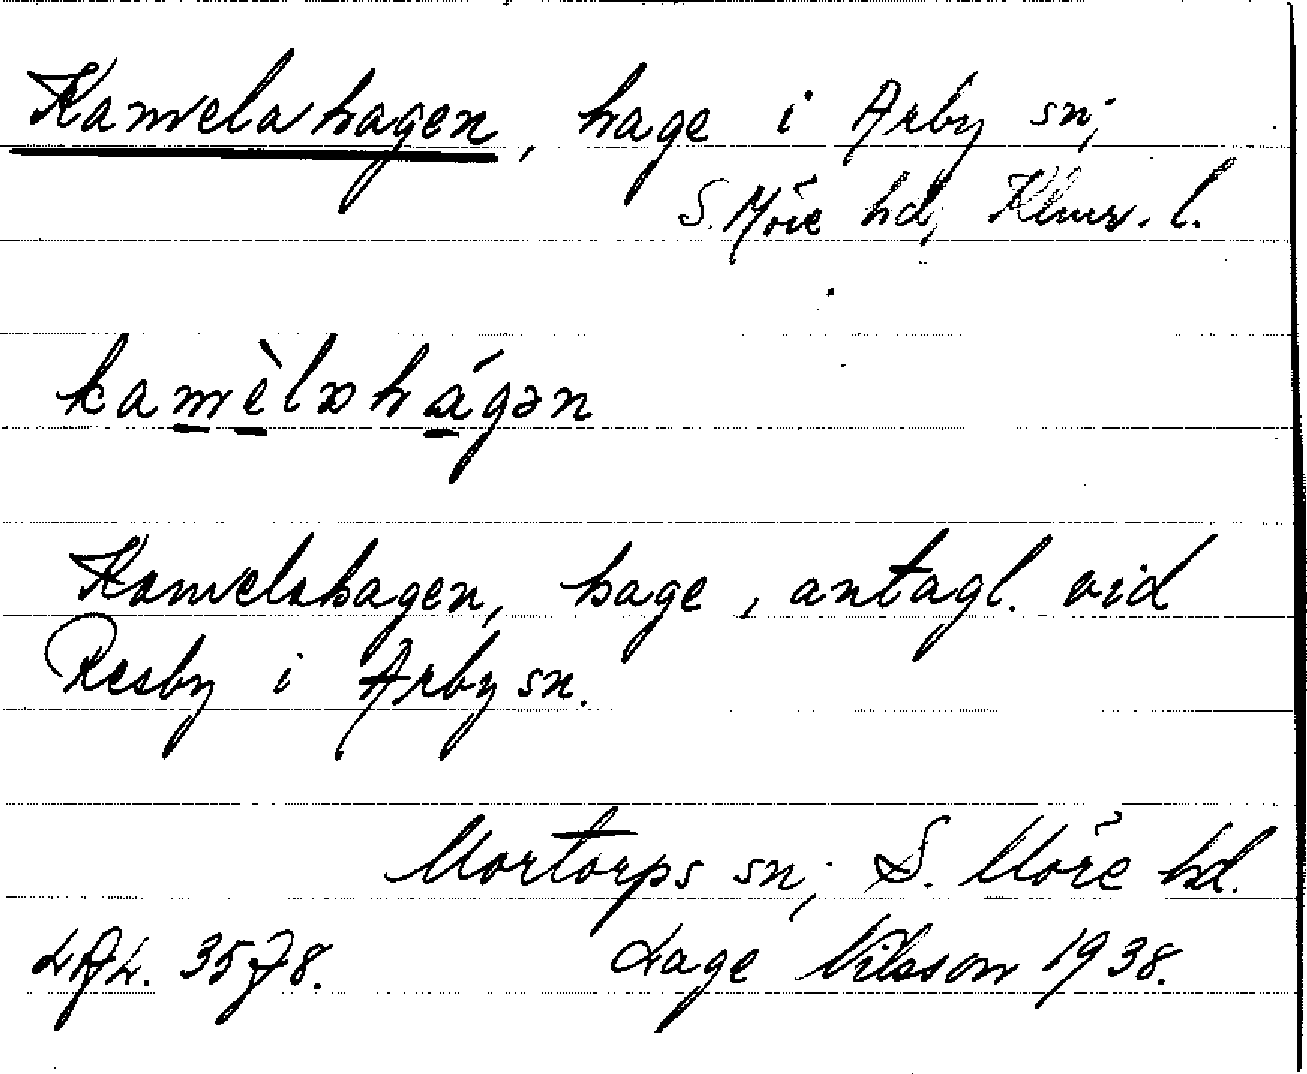 Kamelahagen, hage i Arby sn;
S. Möre hd, Klmr. l.
kamèlahágən
Kamelahagen, hage, antagl. vid
Resby i Arby sn.
Mortorps sn; S. Möre hd.
3578. Lage Nilsson 1938.